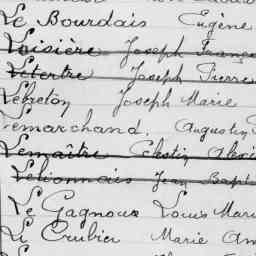 Le Bourdais Eugène
Loisière Joseph Franço
Letertre Joseph Pierre
Lebreton Joseph Marie
Lemarchand. Augustin
Lemaître Célestin Alexi
Lelionnais Jean Bapt
Le Gagnoux Louis Mari
Le Crubier Marie Am